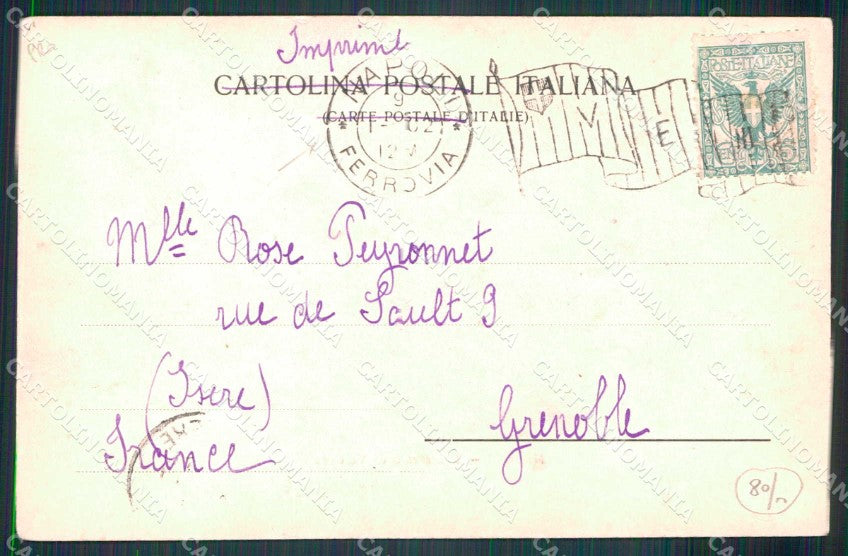 Imprimé
CARTOLINA POSTALE ITALIANA
(CARTE POSTALE D'ITALIE)
NAPOLI
9
1- 02
12
FERROVIA
V E III
POSTE ITALIANE
Mlle Rose Peyronnet
rue de Sault 9
(Isere)
Grenoble
France
80/
CARTOLINOMANIA